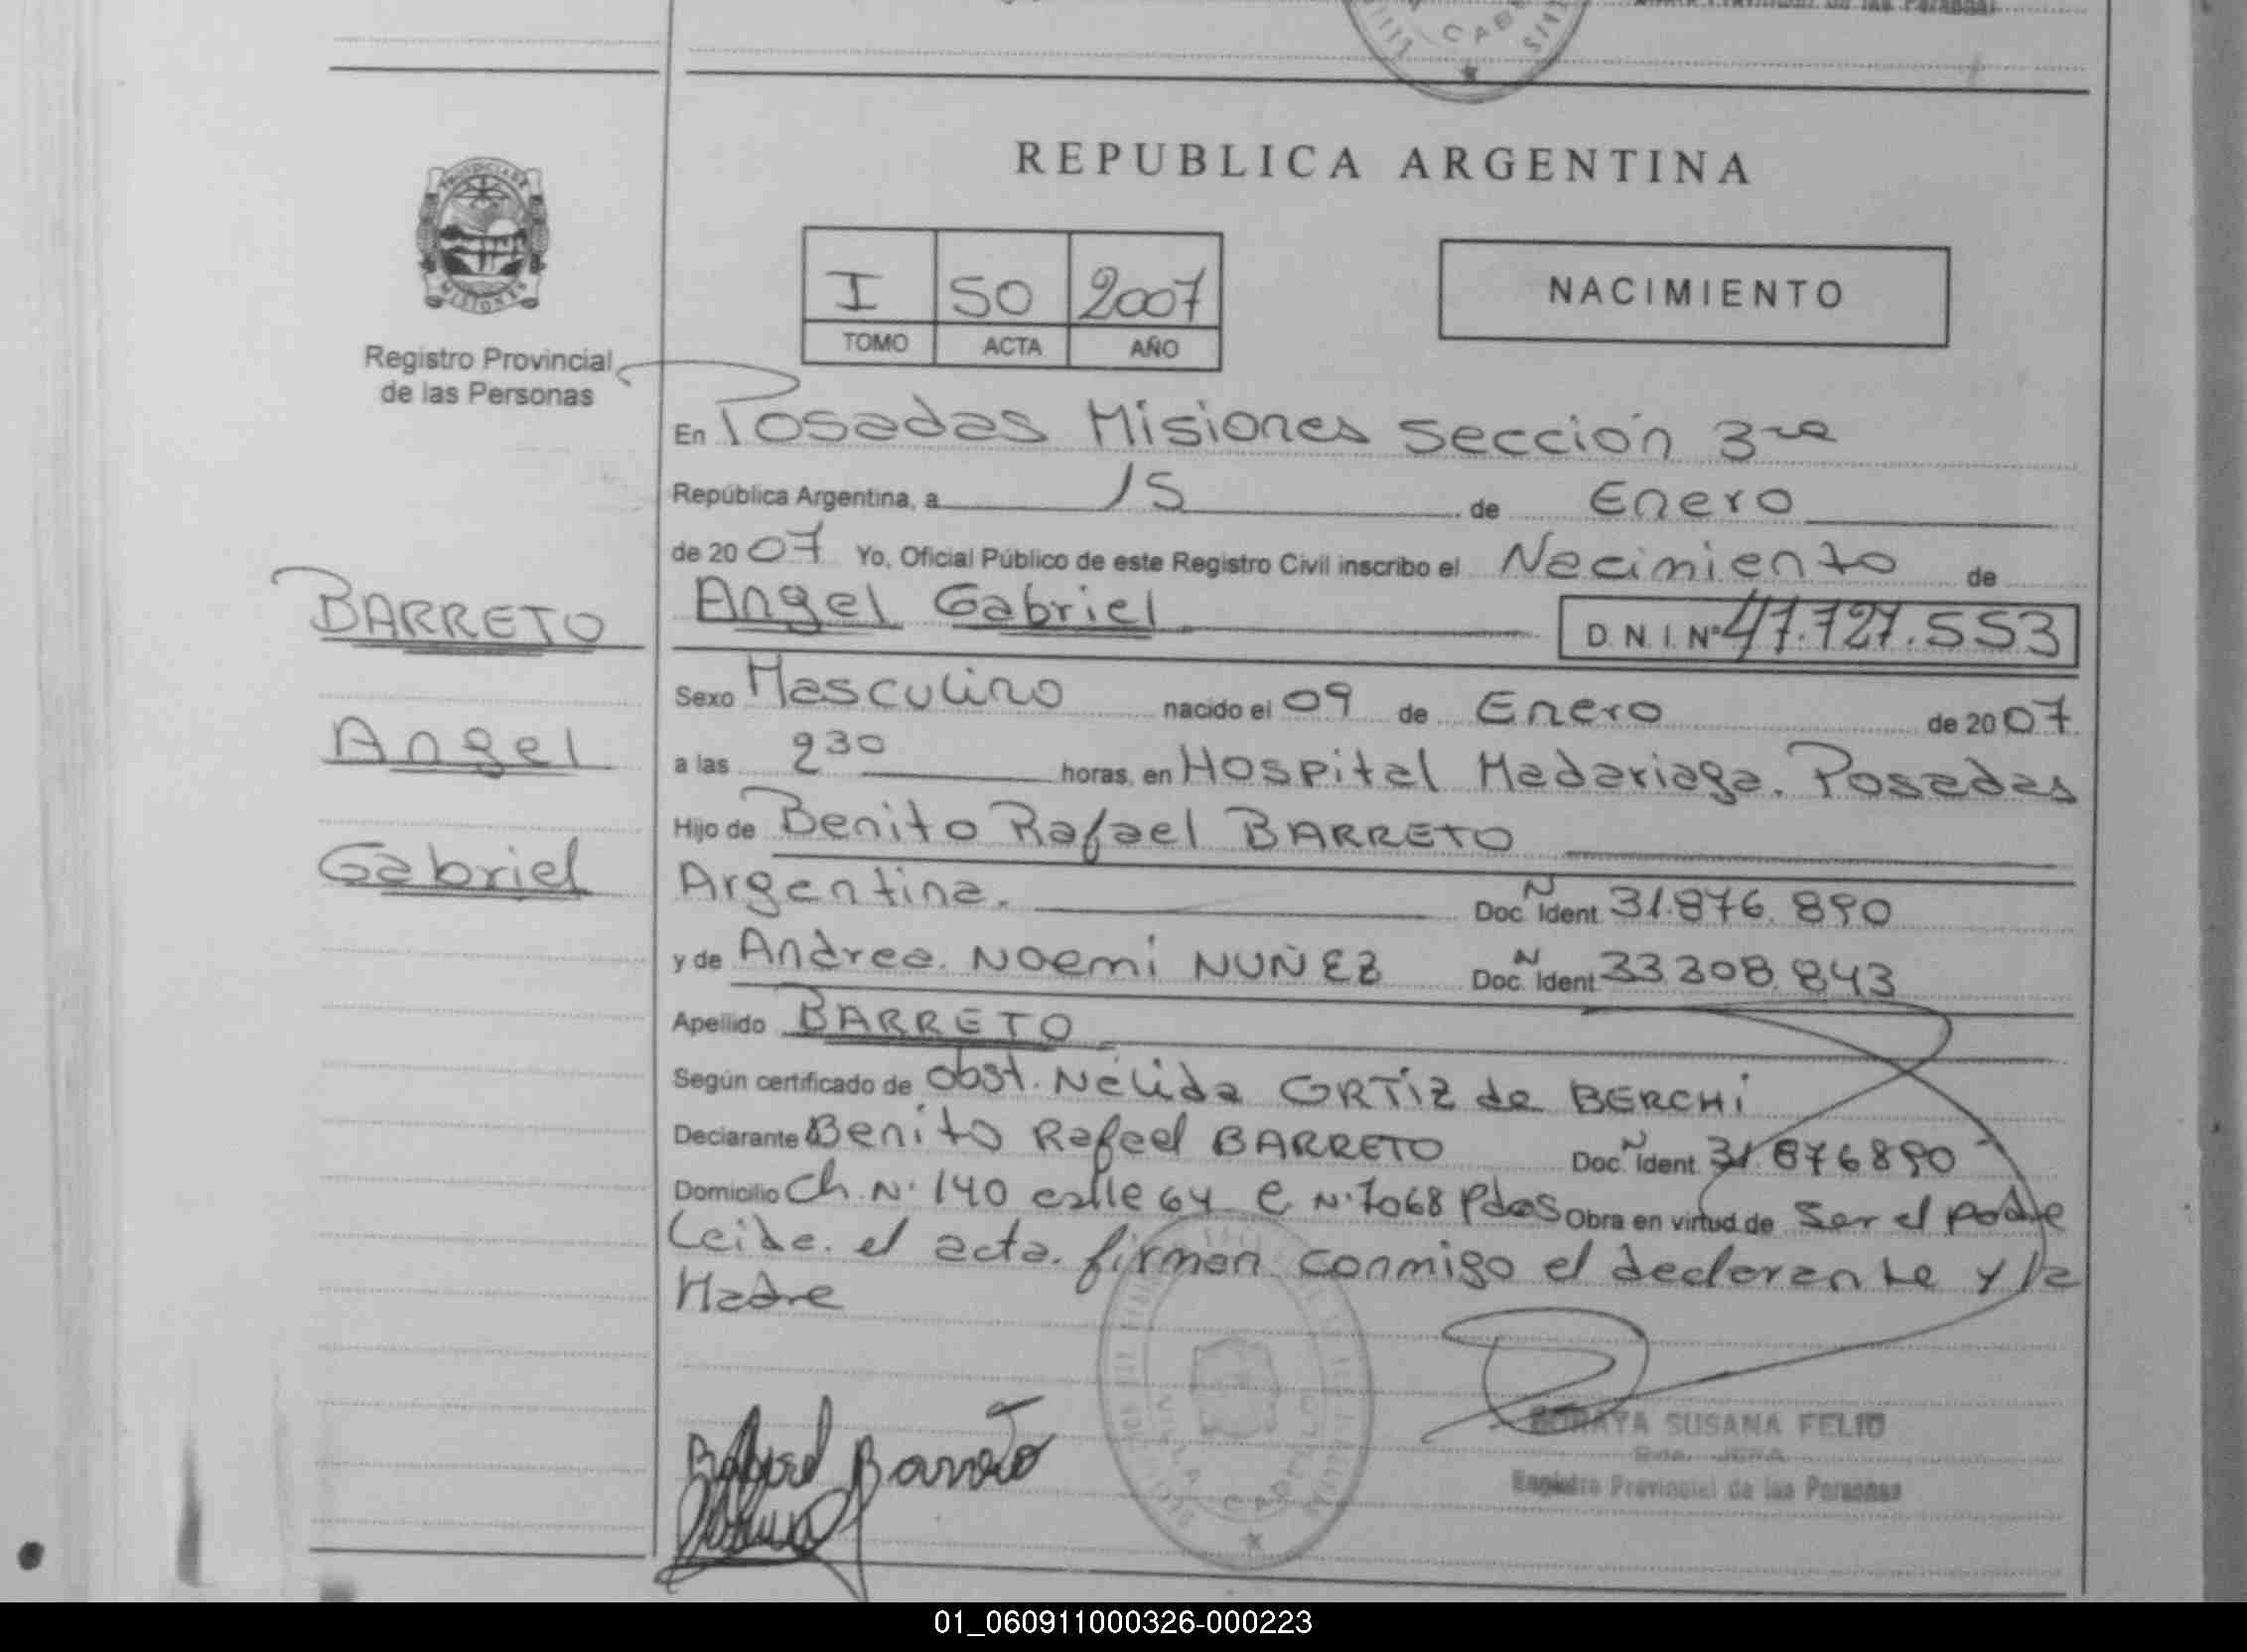 REPUBLICA ARGENTINA
PROVINCIA DE
MISIONES
Registro Provincial
de las Personas
I 50 2007
TOMO ACTA AÑO
NACIMIENTO
En Posadas Misiones sección 3ra
República Argentina, a 15 de Enero
de 2007 Yo, Oficial Público de este Registro Civil inscribo el Nacimiento de
Angel Gabriel D.N.I. Nº 47.727.553
BARRETO
Angel
Gabriel
Sexo Masculino nacido el 09 de Enero de 2007
a las 2 30 horas, en Hospital Madariaga. Posadas
Hijo de Benito Rafael BARRETO
Argentina. Doc. N Ident. 31.876.890
y de Andrea Noemi NUÑEZ Doc. N Ident. 33308.843
Apellido BARRETO
Según certificado de obst. Nélida ORTIZ de BERCHI
Declarante Benito Rafael BARRETO Doc. N Ident. 31.876890
Domicilio Ch. N. 140 calle 64 C N. 7068 Pdas Obra en virtud de ser el padre
Leida el acta firman conmigo el declarante y la
Madre
Barreto
SORAYA SUSANA FELIO
Registro Provincial de las Personas
01_060911000326-000223